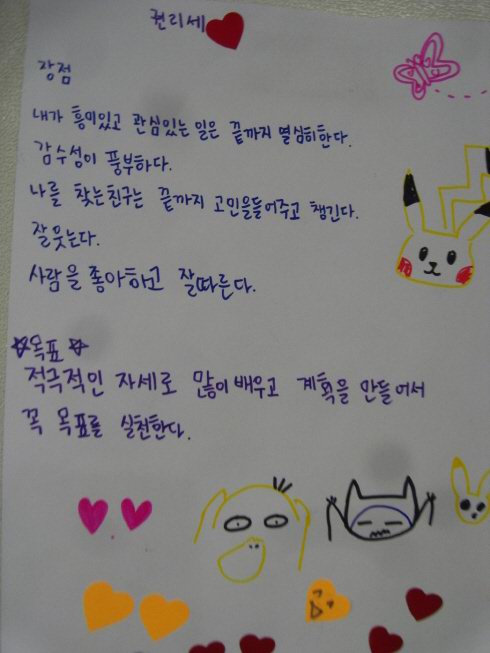 권리세
장점
내가 흥미있고 관심있는 일은 끝까지 열심히한다.
감수성이 풍부하다.
나를 찾는친구는 끝까지 고민을들어주고 챙긴다.
잘웃는다.
사람을 좋아하고 잘따른다.
☆목표☆
적극적인 자세로 많이배우고 계획을 만들어서
꼭 목표를 실천한다.